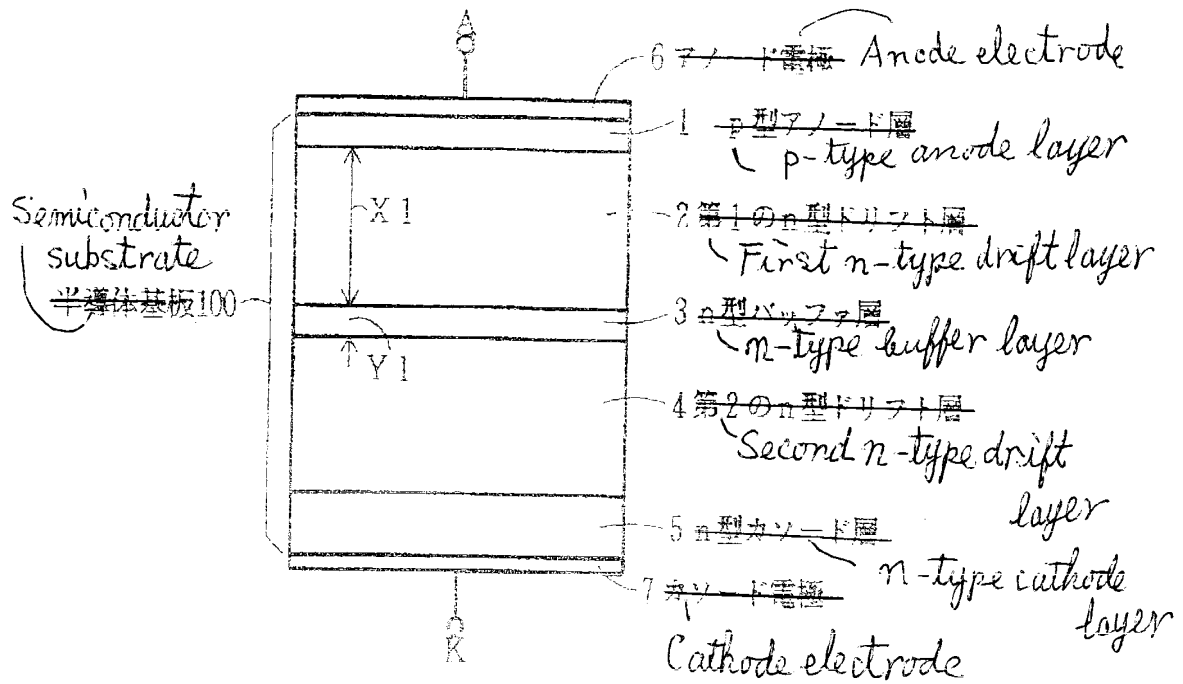 A
6 アノード電極 Anode electrode
1 p型アノード層
p-type anode layer
Semiconductor
substrate
半導体基板100
X1
2 第1のn型ドリフト層
First n-type drift layer
3 n型バッファ層
n-type buffer layer
Y1
4 第2のn型ドリフト層
Second n-type drift
layer
5 n型カソード層
n-type cathode
layer
7 カソード電極
K
Cathode electrode